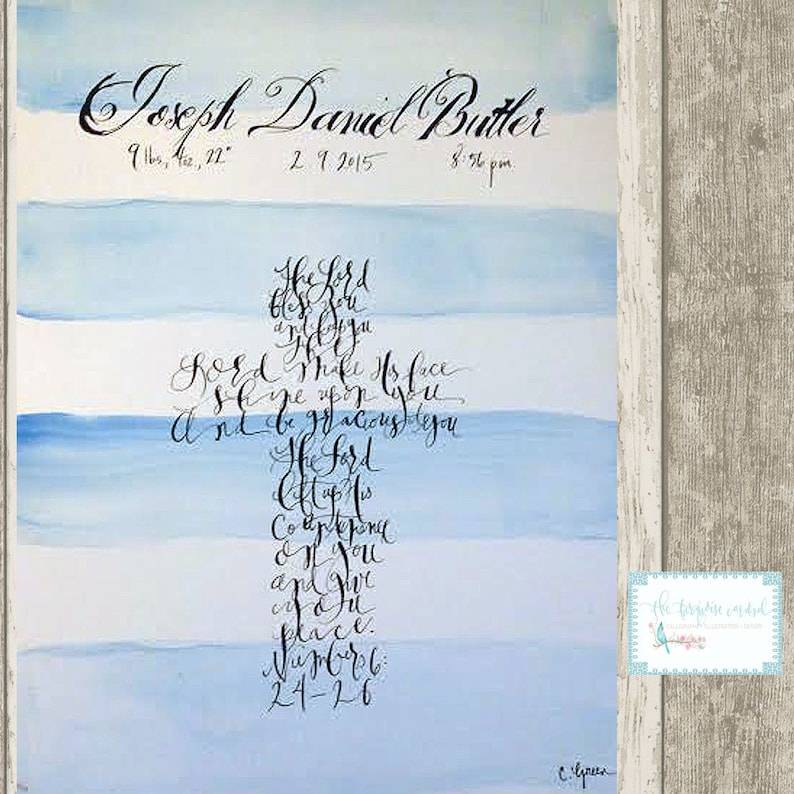 Joseph Daniel Butler
9 lbs, 4oz., 22" 2.9.2015 8:56 pm
The Lord
bless you
and keep you
The
Lord make His face
shine upon you
And be gracious to you
The Lord
lift up His
Countenance
on you
and give
you
peace.
Numbers 6:
24-26
C. Green
the turquoise cardinal
CALLIGRAPHY · ILLUSTRATION · DESIGN